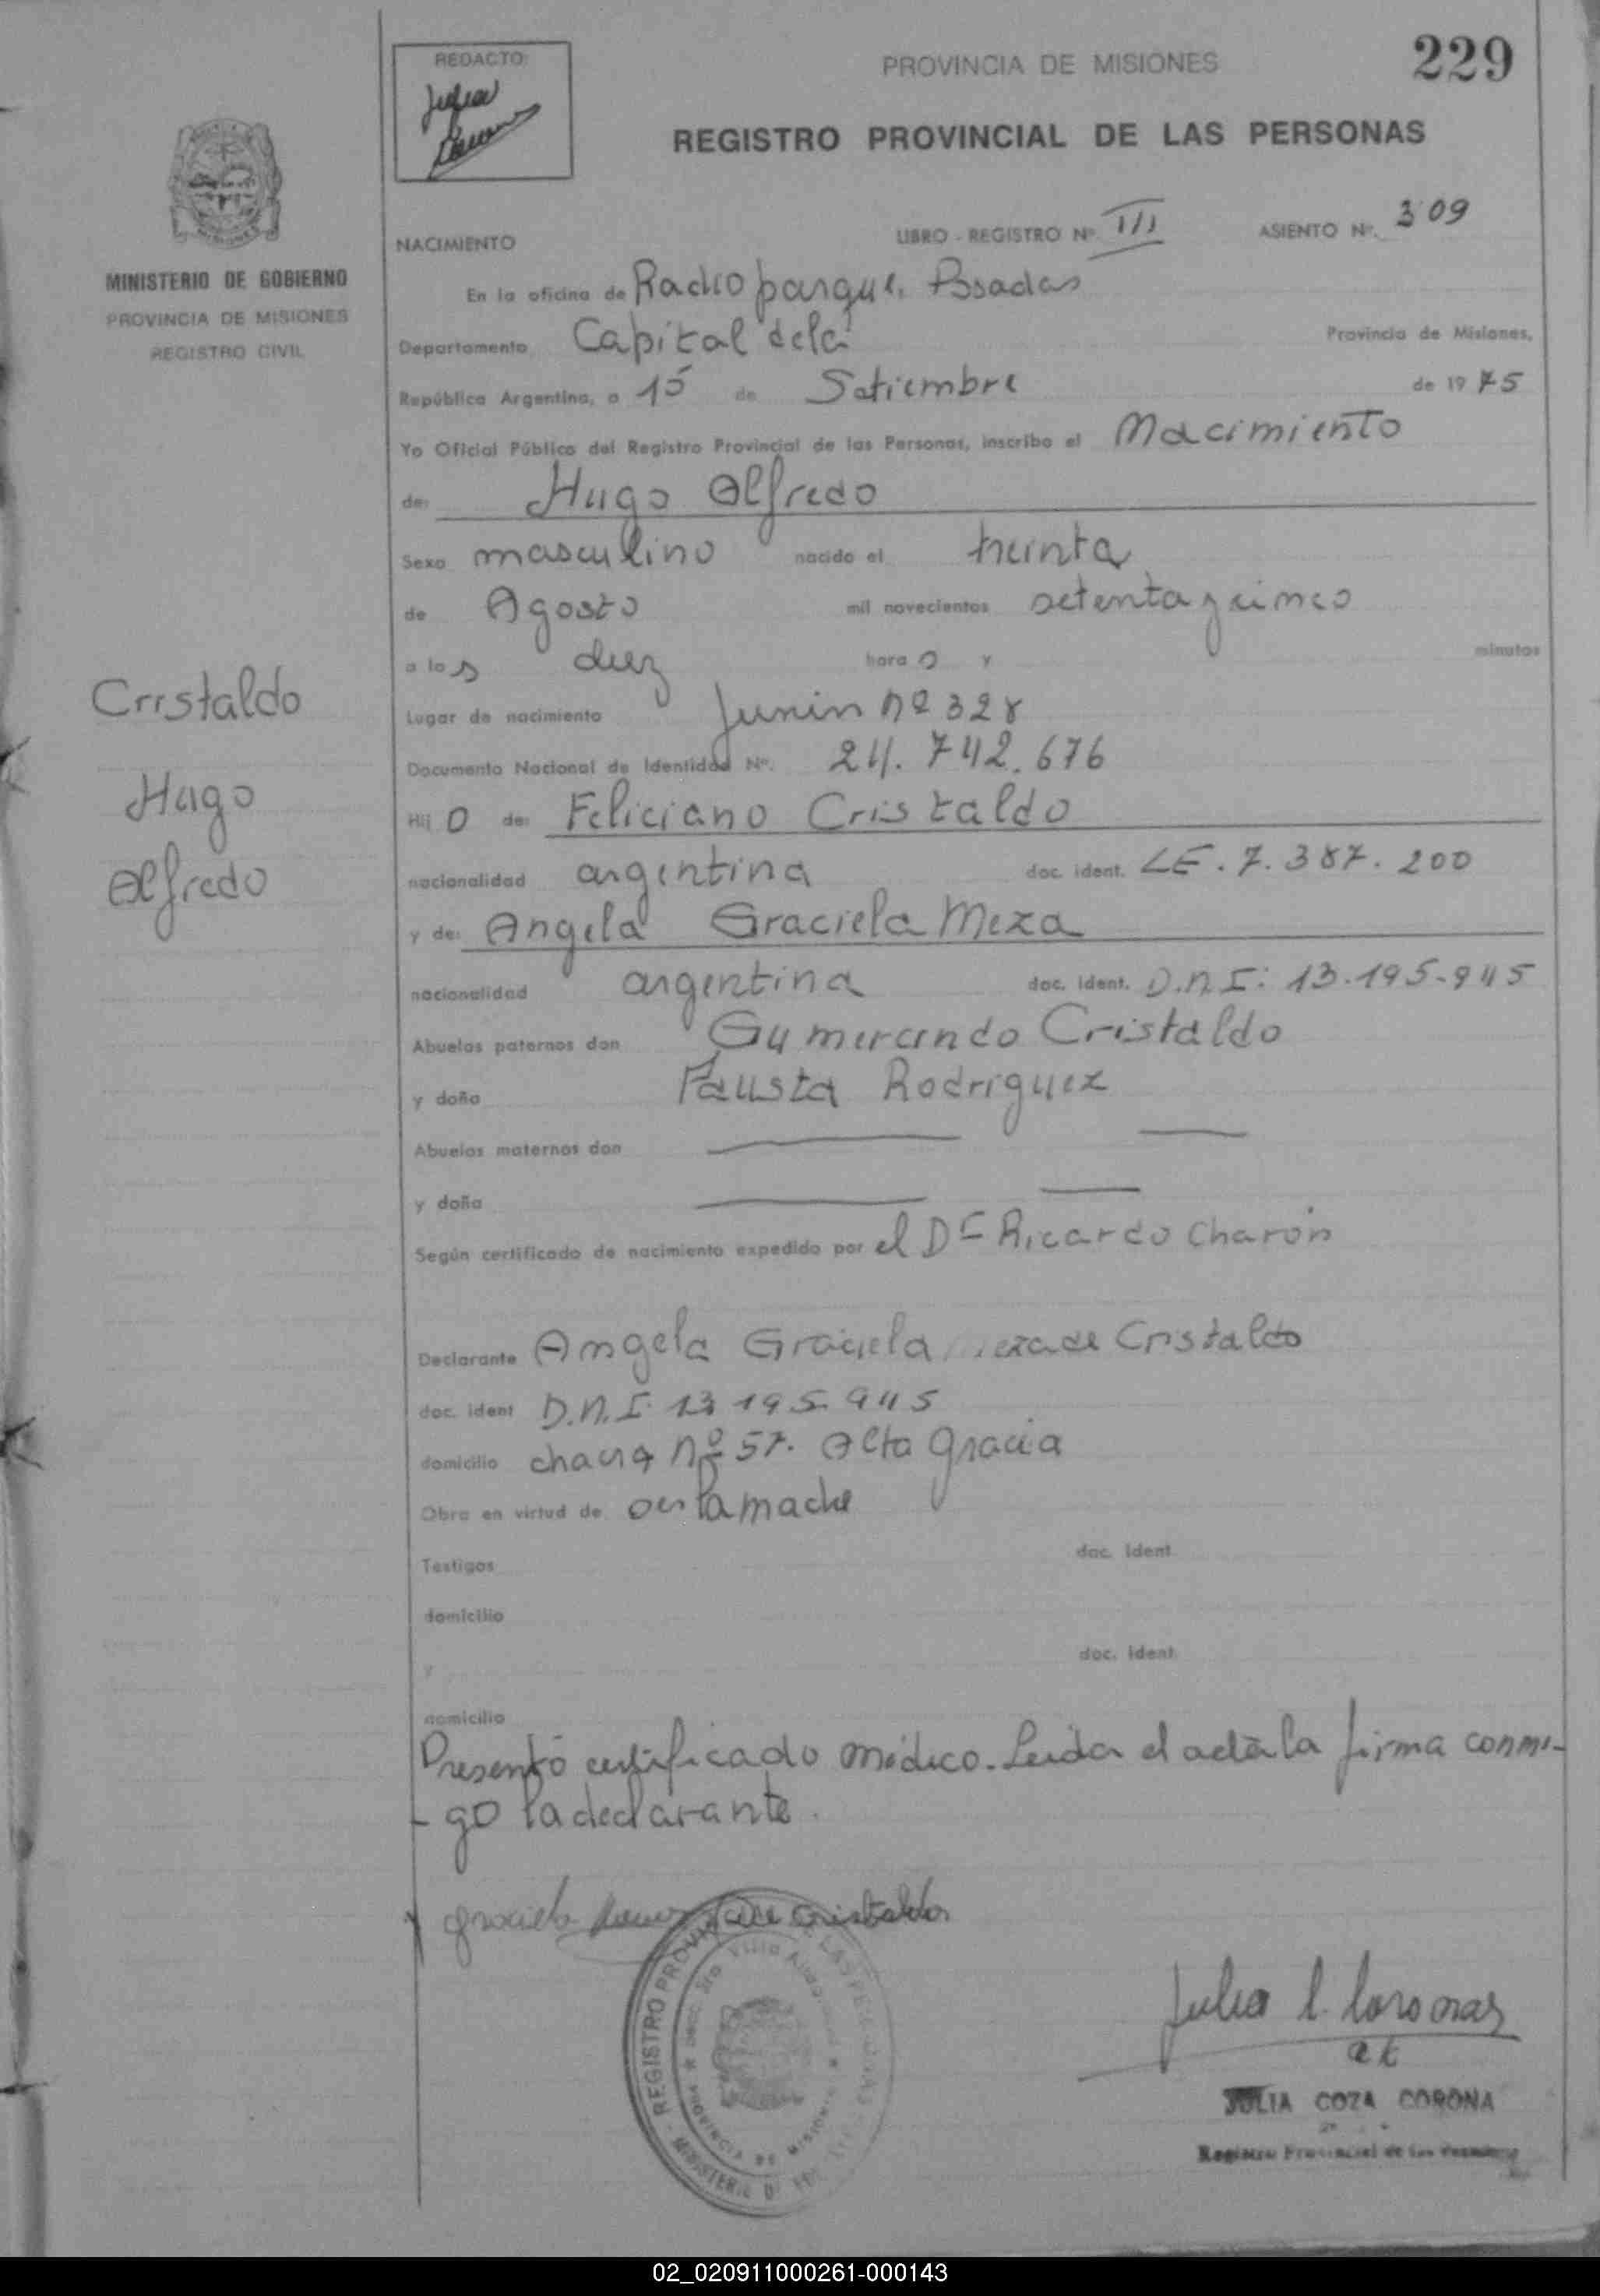 229
REDACTO:
PROVINCIA DE MISIONES
REGISTRO PROVINCIAL DE LAS PERSONAS
MINISTERIO DE GOBIERNO
PROVINCIA DE MISIONES
REGISTRO CIVIL
NACIMIENTO LIBRO - REGISTRO Nº. III ASIENTO Nº. 309
En la oficina de Radioparque, Posadas
Departamento Capital dela Provincia de Misiones,
República Argentina, a 15 de Setiembre de 1975
Yo Oficial Público del Registro Provincial de las Personas, inscribo el Nacimiento
de: Hugo Alfredo
Sexo masculino nacido el treinta
de Agosto mil novecientos setenta y cinco
a las diez hora s y minutos
Lugar de nacimiento Junin nº 328
Documento Nacional de Identidad Nº. 24.742.676
Hij o de: Feliciano Cristaldo
nacionalidad argentina doc. ident. LE. 7.387.200
y de: Angela Graciela Meza
nacionalidad argentina doc. ident. D.N.I: 13.195.945
Abuelos paternos don Gumercindo Cristaldo
y doña Fausta Rodriguez
Abuelos maternos don
y doña
Según certificado de nacimiento expedido por el Dr Ricardo Charón
Declarante Angela Graciela Meza de Cristaldo
doc. ident D.N.I. 13 195 945
domicilio chacra Nº 57. Alta Gracia
Obra en virtud de ser la madre
Testigos doc. ident.
domicilio
y doc. ident.
domicilio
Presentó certificado médico. Leida el acta la firma conmi-
- go la declarante.
Cristaldo
Hugo
Alfredo
Graciela de Cristaldo
REGISTRO PROVINCIAL DE LAS PERSONAS
PROVINCIA DE MISIONES
JULIA COZA CORONA
Registro Provincial de las Personas
02_020911000261-000143